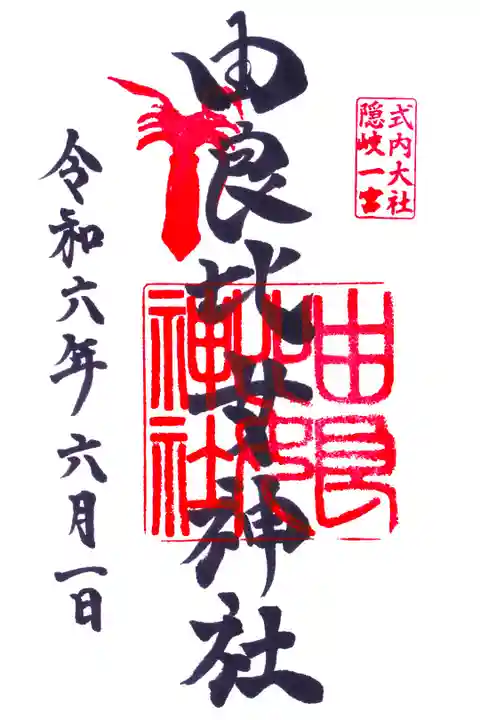 式内大社
隠岐一宮
由良比女神社
由良比女神社
令和六年六月一日